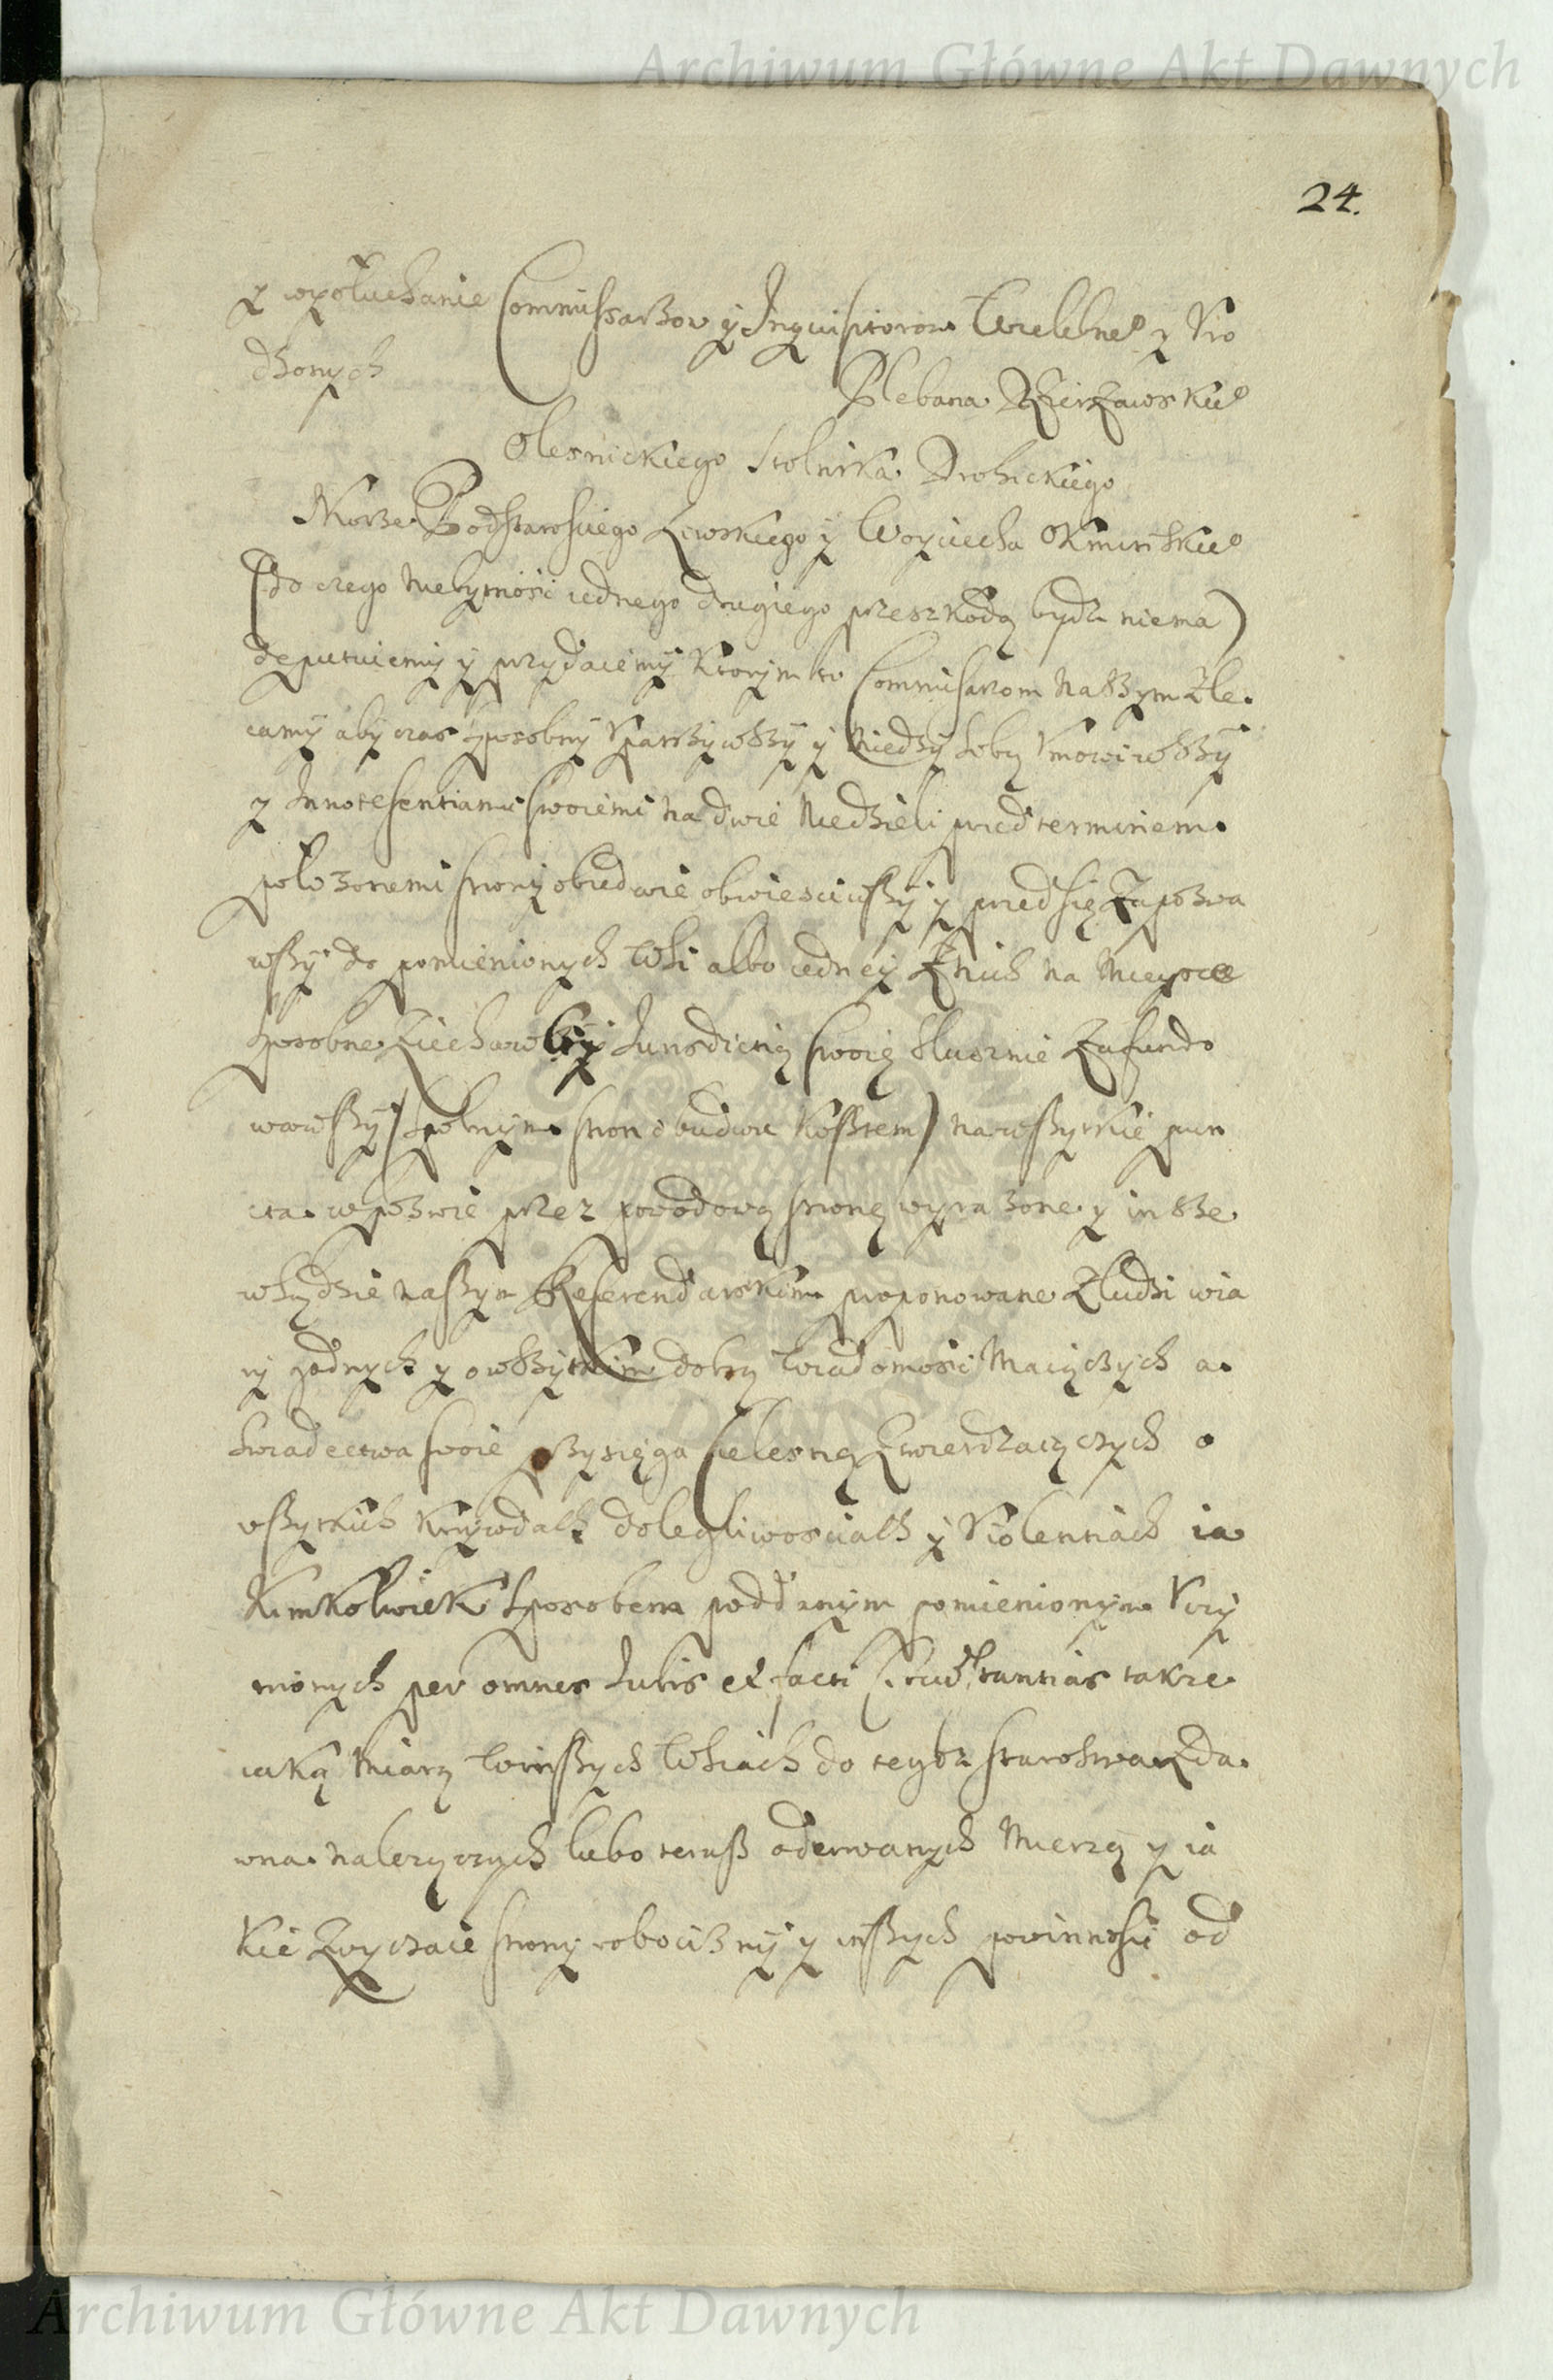 Archiwum Główne Akt Dawnych
24.
y wysłuchanie Commissarzow y Inquisitorow Wielebnego y Uro
dzonych
Plebana Dzierzawskie°
Olesnickiego Stolnika Drohickiego
Morze Podstarosciego Lewskiego y Woyciecha Okminskie°
(do czego niebytność iednego drugiego przeszkodą bydz niema)
deputuiemy y przydaiemy ktorym to Commisarzom naszym zle
camy aby czas sposobny upatrzywszy y miedzy sobą umowiwszy
y Innotescentiami swoiemi na dwie Niedzieli przed terminem
położonemi strony obiedwie obwiesciwszy y przed się zapozwa
wszy do pomienionych Wsi albo iedney z nich na mieysce
sposobne ziechawszy y Iurisdictią swoię słusznie zafundo
wawszy (spolnym stron obudwu kosztem) na wszytkie pun
cta w pozwie przez powodową stronę wyrażone y insze
w sądzie naszym Referendarskim proponowane z ludzi wia
ry godnych y o wszytkim dobrą wiadomość maiących a
swiadectwa swoie przysięgą cielesną ztwierdzaiących o
wszytkich krzywdach dolegliwosciach y violentiach ia
kimkolwiek sposobem poddanym pomienionym uczy
nionych per omnes Iuris et facti circumstantias także
iaką miarą w inszych Wsiach do tegoz starostwa zda
wna należących lubo teraz oderwanych mierzą y ia
kie zwyczaie strony robocizny y inszych powinności od
Archiwum Główne Akt Dawnych